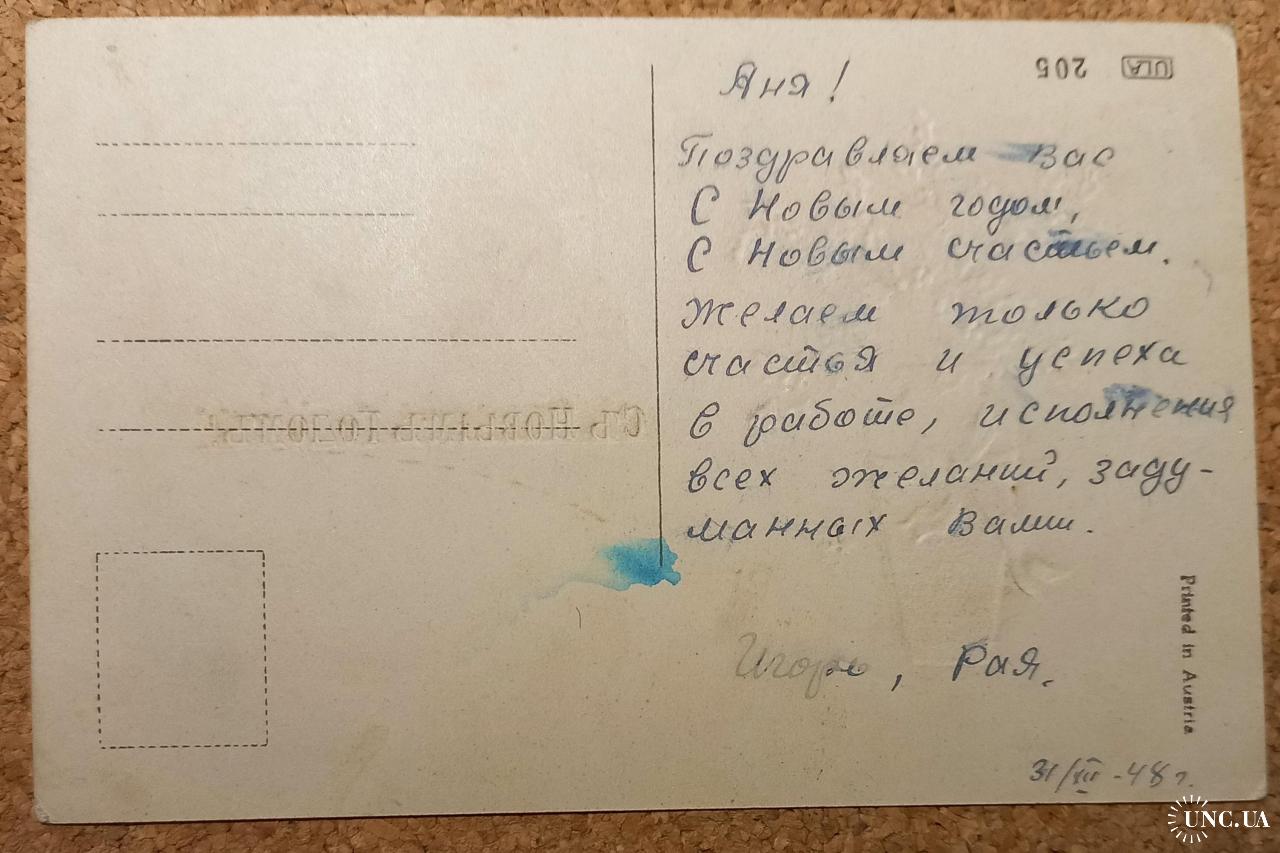 Аня!
205 ULA
Поздравляем Вас
С Новым годом,
С Новым счастьем.
Желаем только
счастья и успеха
в работе, исполнения
всех желаний, заду-
манных Вами.
Игорь, Рая.
31/XII-48 г.
Printed in Austria
Съ Новымъ Годомъ!
UNC.UA